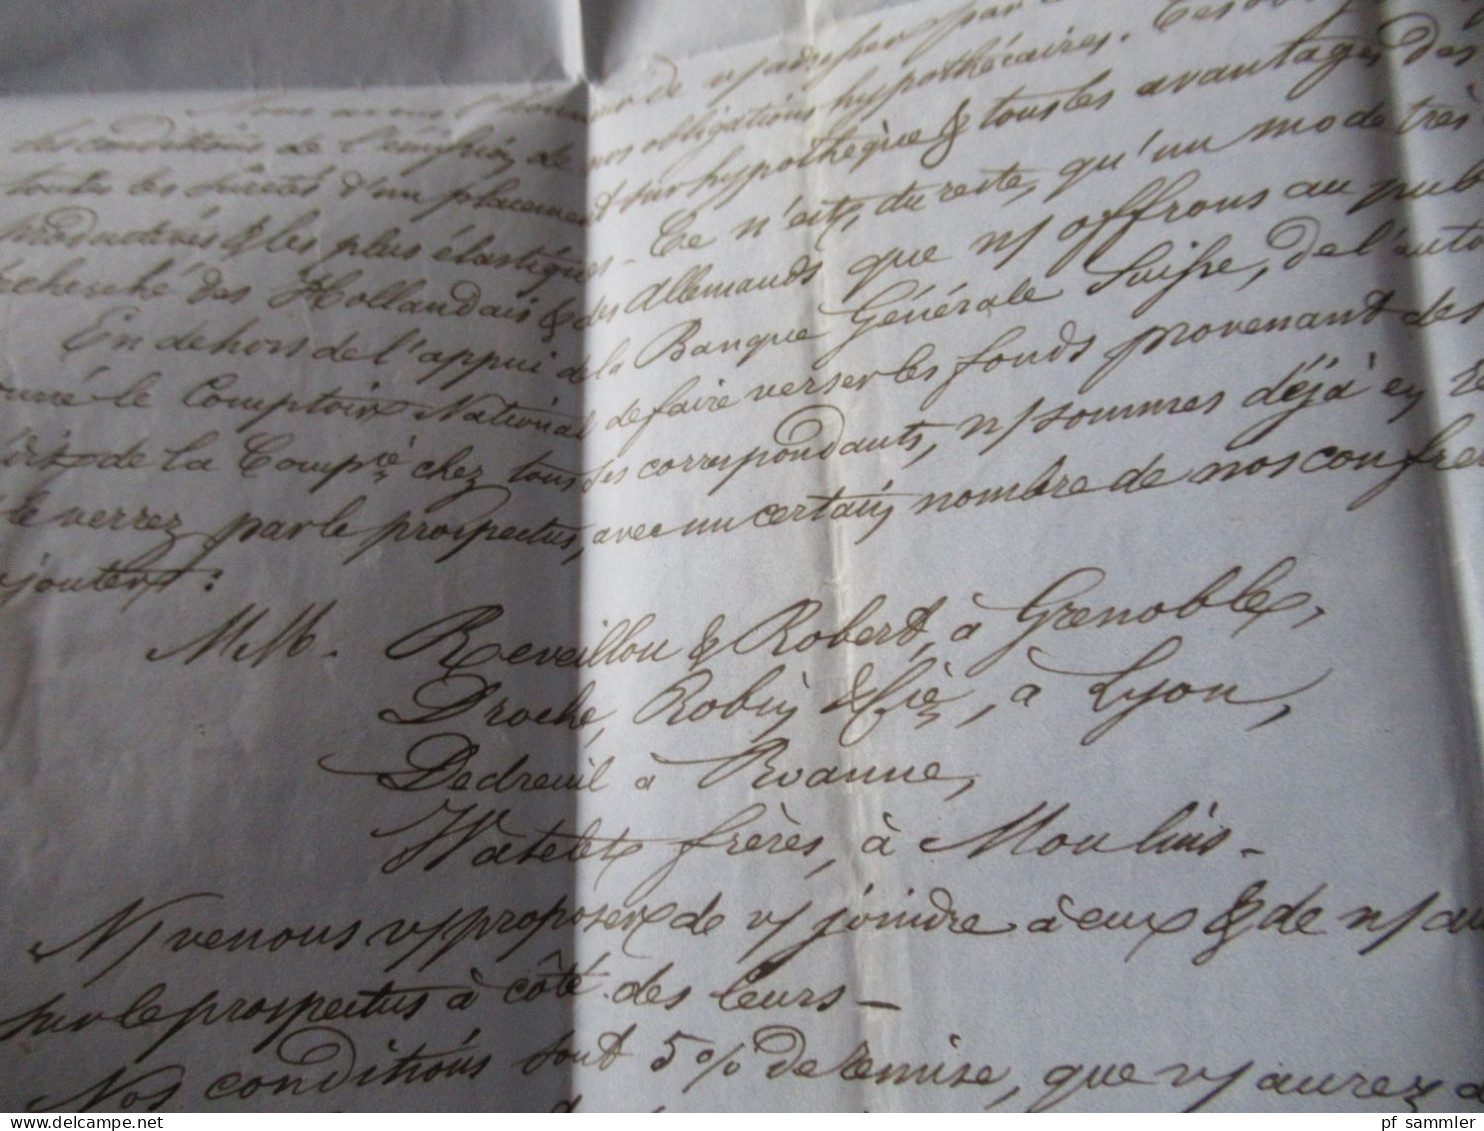 Nous avons l'honneur de v/ adresser par
les conditions de l'émission de nos obligations hypothécaires. Ces
toutes les sûretés d'un placement sur hypothèque & tous les avantages des
productives & les plus élastiques. Ce n'est, du reste, qu'un mode très
recherché des Hollandais & des Allemands que n/ offrons au publ
En dehors de l'appui de la Banque Générale Suisse, de l'auto
le Comptoir National de faire verser les fonds provenant des
de la Compie chez tous ses correspondants, n/ sommes déjà en
le verrez par le prospectus, avec un certain nombre de nos confrè
ajouter:
MM. Reveillon & Robert, à Grenoble,
Droche, Robin & Cie, à Lyon,
Dedreuil à Roanne,
Watelet frères, à Moulins-
N/ venons v/ proposer de v/ joindre à eux & de n/ au
sur le prospectus à côté des leurs-
Nos conditions sont 5% de remise, que v/ aurez à
pf sammler